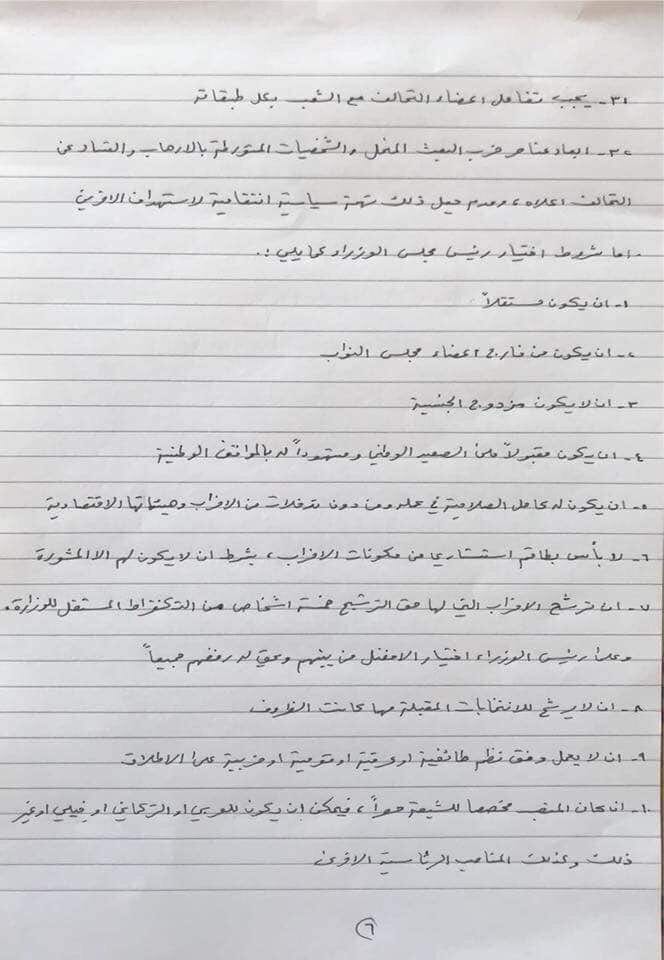 ٣١- يجب تفاعل اعضاء التحالف مع الشعب بكل طبقاته
٣٢- ابعاد عناصر حزب البعث المنحل والشخصيات المتورطة بالارهاب والفساد عن
التحالف اعلاه، وعدم جعل ذلك تهمة سياسية انتقامية لاستهداف الاخرين
.اما شروط اختيار رئيس مجلس الوزراء كمايلي :.
١- ان يكون مستقلاً
٢- ان يكون من خارج اعضاء مجلس النواب
٣- ان لا يكون مزدوج الجنسية
٤- ان يكون مقبولاً على الصعيد الوطني ومشهوداً له بالمواقف الوطنية
٥- ان يكون له كامل الصلاحية في عمله ومن دون تدخلات من الاحزاب وهيئاتها الاقتصادية
٦- لا بأس بطاقم استشاري من مكونات الاحزاب، بشرط ان لا يكون لهم الا المشورة
٧- ان ترشح الاحزاب التي لها حق الترشيح خمسة اشخاص من التكنقراط المستقل للوزارة.
وعلى رئيس الوزراء اختيار الافضل من بينهم ويحق له رفضهم جميعاً
٨- ان لا يرشح للانتخابات المقبلة مهما كانت الظروف
٩- ان لا يعمل وفق نظم طائفية او عرقية او قومية او حزبية على الاطلاق
١٠- ان كان المنصب مخصصا للشيعة حصراً، فيمكن ان يكون للعربي او التركماني او فيلي او غير
ذلك وكذلك المناصب الرئاسية الاخرى
٦